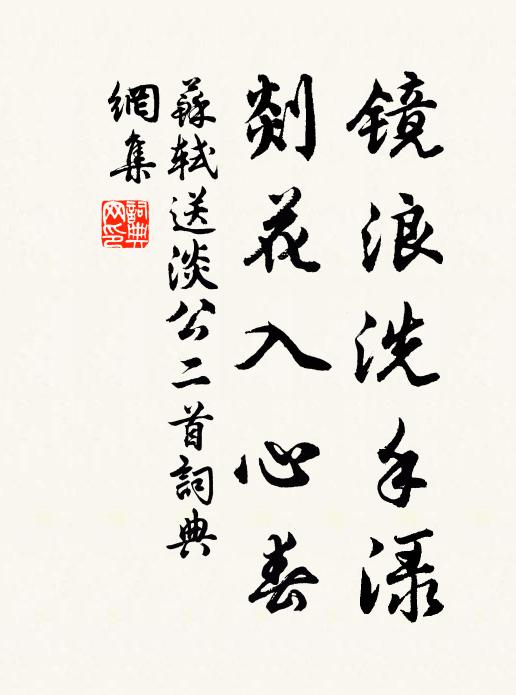 镜浪洗手渌
剡花入心春
蘇軾送淡公二首詞典
網集
詞典网印